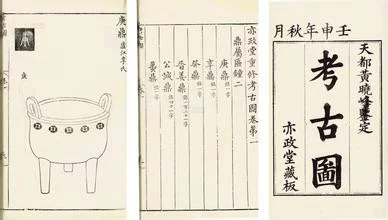 壬申年秋月
天都黃曉峰鑒定
考古圖
亦政堂藏板
亦政堂重修考古圖卷第一
庚鼎
辛鼎
癸鼎
晉姜鼎
公諴鼎
庚鼎 廬江李氏
庚